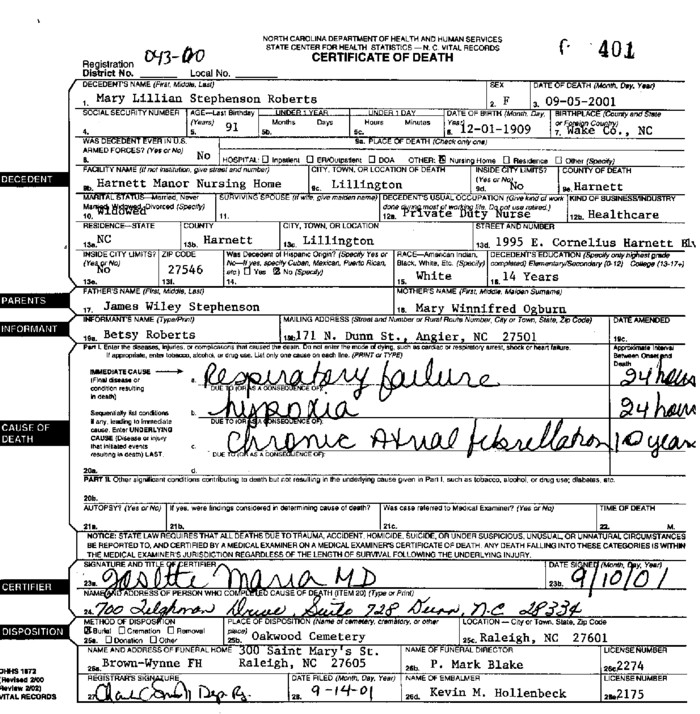 NORTH CAROLINA DEPARTMENT OF HEALTH AND HUMAN SERVICES
STATE CENTER FOR HEALTH STATISTICS — N. C. VITAL RECORDS
CERTIFICATE OF DEATH
401
Registration District No. 043-00 Local No.
DECEDENT'S NAME (First, Middle, Last) SEX DATE OF DEATH (Month, Day, Year)
1. Mary Lillian Stephenson Roberts 2. F 3. 09-05-2001
SOCIAL SECURITY NUMBER AGE—Last Birthday (Years) UNDER 1 YEAR Months Days UNDER 1 DAY Hours Minutes DATE OF BIRTH (Month, Day, Year) BIRTHPLACE (County and State or Foreign Country)
4. 5. 91 5b. 6. 12-01-1909 7. Wake Co., NC
WAS DECEDENT EVER IN U.S. ARMED FORCES? (Yes or No) 9a. PLACE OF DEATH (Check only one)
8. No HOSPITAL: Inpatient ER/Outpatient DOA OTHER: Nursing Home Residence Other (Specify)
DECEDENT
FACILITY NAME (If not institution, give street and number) CITY, TOWN, OR LOCATION OF DEATH INSIDE CITY LIMITS? (Yes or No) COUNTY OF DEATH
9b. Harnett Manor Nursing Home 9c. Lillington 9d. No 9e. Harnett
MARITAL STATUS—Married, Never Married, Widowed, Divorced (Specify) SURVIVING SPOUSE (If wife, give maiden name) DECEDENT'S USUAL OCCUPATION (Give kind of work done during most of working life. Do not use retired.) KIND OF BUSINESS/INDUSTRY
10. Widowed 11. 12a. Private Duty Nurse 12b. Healthcare
RESIDENCE—STATE COUNTY CITY, TOWN, OR LOCATION STREET AND NUMBER
13a. NC 13b. Harnett 13c. Lillington 13d. 1995 E. Cornelius Harnett
INSIDE CITY LIMITS? (Yes or No) ZIP CODE Was Decedent of Hispanic Origin? (Specify Yes or No—If yes, specify Cuban, Mexican, Puerto Rican, etc.) Yes No (Specify) RACE—American Indian, Black, White, Etc. (Specify) DECEDENT'S EDUCATION (Specify only highest grade completed) Elementary/Secondary (0-12) College (13-17+)
13e. No 13f. 27546 14. 15. White 16. 14 Years
PARENTS
FATHER'S NAME (First, Middle, Last) MOTHER'S NAME (First, Middle, Maiden Surname)
17. James Wiley Stephenson 18. Mary Winnifred Ogburn
INFORMANT
INFORMANT'S NAME (Type/Print) MAILING ADDRESS (Street and Number or Rural Route Number, City or Town, State, Zip Code) DATE AMENDED
19a. Betsy Roberts 19b. 171 N. Dunn St., Angier, NC 27501 19c.
Part I. Enter the diseases, injuries, or complications that caused the death. Do not enter the mode of dying, such as cardiac or respiratory arrest, shock or heart failure.
If appropriate, enter tobacco, alcohol, or drug use. List only one cause on each line. (PRINT or TYPE)
Approximate Interval Between Onset and Death
CAUSE OF DEATH
IMMEDIATE CAUSE (Final disease or condition resulting in death) a. Respiratory failure 24 hours
DUE TO (OR AS A CONSEQUENCE OF):
Sequentially list conditions if any, leading to immediate cause. Enter UNDERLYING CAUSE (Disease or injury that initiated events resulting in death) LAST.
b. hypoxia 24 hours
DUE TO (OR AS A CONSEQUENCE OF):
c. Chronic Atrial fibrellation 10 years
DUE TO (OR AS A CONSEQUENCE OF):
20a. d.
PART II. Other significant conditions contributing to death but not resulting in the underlying cause given in Part I, such as tobacco, alcohol, or drug use; diabetes, etc.
20b.
AUTOPSY? (Yes or No) If yes, were findings considered in determining cause of death? Was case referred to Medical Examiner? (Yes or No) TIME OF DEATH
21a. 21b. 21c. 22. M.
NOTICE: STATE LAW REQUIRES THAT ALL DEATHS DUE TO TRAUMA, ACCIDENT, HOMICIDE, SUICIDE, OR UNDER SUSPICIOUS, UNUSUAL, OR UNNATURAL CIRCUMSTANCES
BE REPORTED TO, AND CERTIFIED BY A MEDICAL EXAMINER ON A MEDICAL EXAMINER'S CERTIFICATE OF DEATH. ANY DEATH FALLING INTO THESE CATEGORIES IS WITHIN
THE MEDICAL EXAMINER'S JURISDICTION REGARDLESS OF THE LENGTH OF SURVIVAL FOLLOWING THE UNDERLYING INJURY.
CERTIFIER
SIGNATURE AND TITLE OF CERTIFIER DATE SIGNED (Month, Day, Year)
23a. Maria MD 23b. 9/10/01
NAME AND ADDRESS OF PERSON WHO COMPLETED CAUSE OF DEATH (ITEM 20) (Type or Print)
24. 700 Tilghman Drive Suite 728 Dunn, N.C 28334
DISPOSITION
METHOD OF DISPOSITION PLACE OF DISPOSITION (Name of cemetery, crematory, or other place) LOCATION — City or Town, State, Zip Code
Burial Cremation Removal
25a. Donation Other 25b. Oakwood Cemetery 25c. Raleigh, NC 27601
NAME AND ADDRESS OF FUNERAL HOME 300 Saint Mary's St. NAME OF FUNERAL DIRECTOR LICENSE NUMBER
26a. Brown-Wynne FH Raleigh, NC 27605 26b. P. Mark Blake 26c. 2274
REGISTRAR'S SIGNATURE DATE FILED (Month, Day, Year) NAME OF EMBALMER LICENSE NUMBER
27. Dep Rg. 28. 9-14-01 26d. Kevin M. Hollenbeck 26e. 2175
DHHS 1872
(Revised 2/00
Review 2/02)
VITAL RECORDS